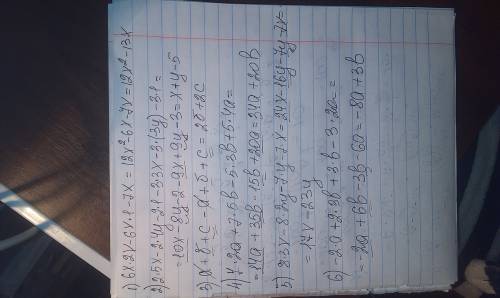 1) 6x·2x-6x·1-7x=12x²-6x-7x=12x²-13x
2) 2·5x-2·4y-2·1-3·3x-3·(3y)-3·1=
=10x-8y-2-9x+9y-3=x+y-5
3) a+b+c-a+b+c=2b+2c
4) 7·2a+7·5b-5·3b+5·4a=
=14a+35b-15b+20a=34a+20b
5) 8·3x-8·2y-7y-7·x=24x-16y-7y-7x=
=17x-23y
6) -2·a+2·3b+3·b-3·2a=
=-2a+6b-3b-6a=-8a+3b